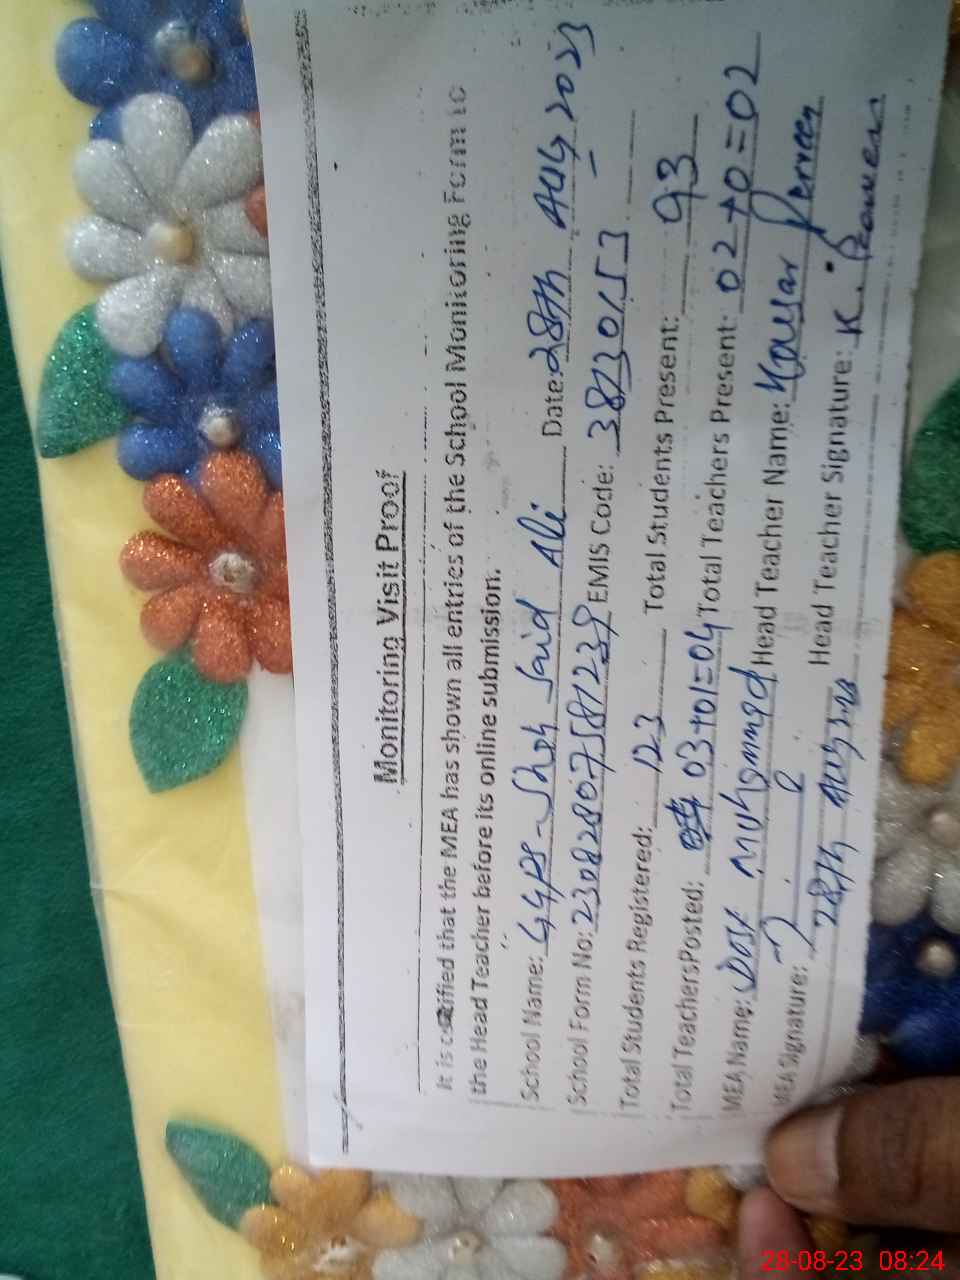 Monitoring Visit Proof
It is certified that the MEA has shown all entries of the School Monitoring Form to
the Head Teacher before its online submission.
School Name: GGPS-Shah Said Ali Date: 28th Aug 2023
School Form No: 230828075881239 EMIS Code: 38230153
Total Students Registered: 123 Total Students Present: 93
Total Teachers Posted: 03+01=04 Total Teachers Present: 02+0=02
MEA Name: Dost Muhammad Head Teacher Name: Kausar Perveen
MEA Signature: Head Teacher Signature: K. Perveen
28th Aug 2023
28-08-23 08:24